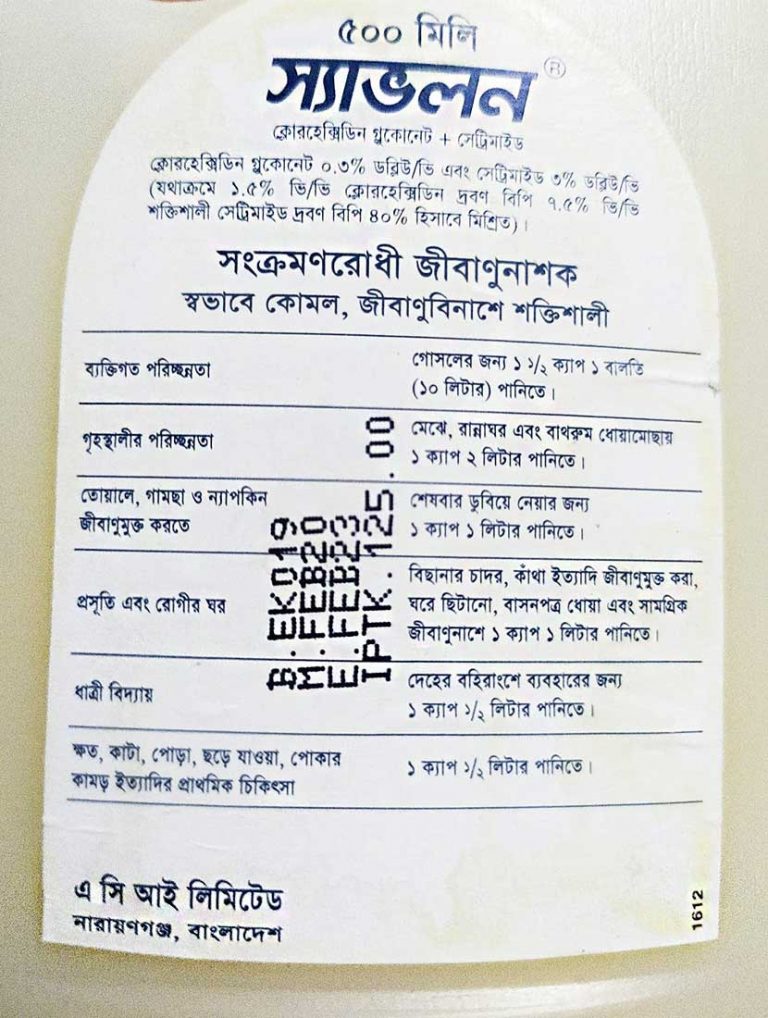 ৫০০ মিলি
স্যাভলন ®
ক্লোরহেক্সিডিন গ্লুকোনেট + সেট্রিমাইড
ক্লোরহেক্সিডিন গ্লুকোনেট ০.৩% ডব্লিউ/ভি এবং সেট্রিমাইড ৩% ডব্লিউ/ভি
(যথাক্রমে ১.৫% ভি/ভি ক্লোরহেক্সিডিন দ্রবণ বিপি ৭.৫% ভি/ভি
শক্তিশালী সেট্রিমাইড দ্রবণ বিপি ৪০% হিসাবে মিশ্রিত)।
সংক্রমণরোধী জীবাণুনাশক
স্বভাবে কোমল, জীবাণুবিনাশে শক্তিশালী
ব্যক্তিগত পরিচ্ছন্নতা
গোসলের জন্য ১ ১/২ ক্যাপ ১ বালতি
(১০ লিটার) পানিতে।
গৃহস্থালীর পরিচ্ছন্নতা
মেঝে, রান্নাঘর এবং বাথরুম ধোয়ামোছায়
১ ক্যাপ ২ লিটার পানিতে।
তোয়ালে, গামছা ও ন্যাপকিন
জীবাণুমুক্ত করতে
শেষবার ডুবিয়ে নেয়ার জন্য
১ ক্যাপ ১ লিটার পানিতে।
প্রসূতি এবং রোগীর ঘর
বিছানার চাদর, কাঁথা ইত্যাদি জীবাণুমুক্ত করা,
ঘরে ছিটানো, বাসনপত্র ধোয়া এবং সামগ্রিক
জীবাণুনাশে ১ ক্যাপ ১ লিটার পানিতে।
ধাত্রী বিদ্যায়
দেহের বহিরাংশে ব্যবহারের জন্য
১ ক্যাপ ১/২ লিটার পানিতে।
ক্ষত, কাটা, পোড়া, ছড়ে যাওয়া, পোকার
কামড় ইত্যাদির প্রাথমিক চিকিৎসা
১ ক্যাপ ১/২ লিটার পানিতে।
B.EK019
M.FEB20
E.FEB23
IPTK.125.00
এ সি আই লিমিটেড
নারায়ণগঞ্জ, বাংলাদেশ
1612